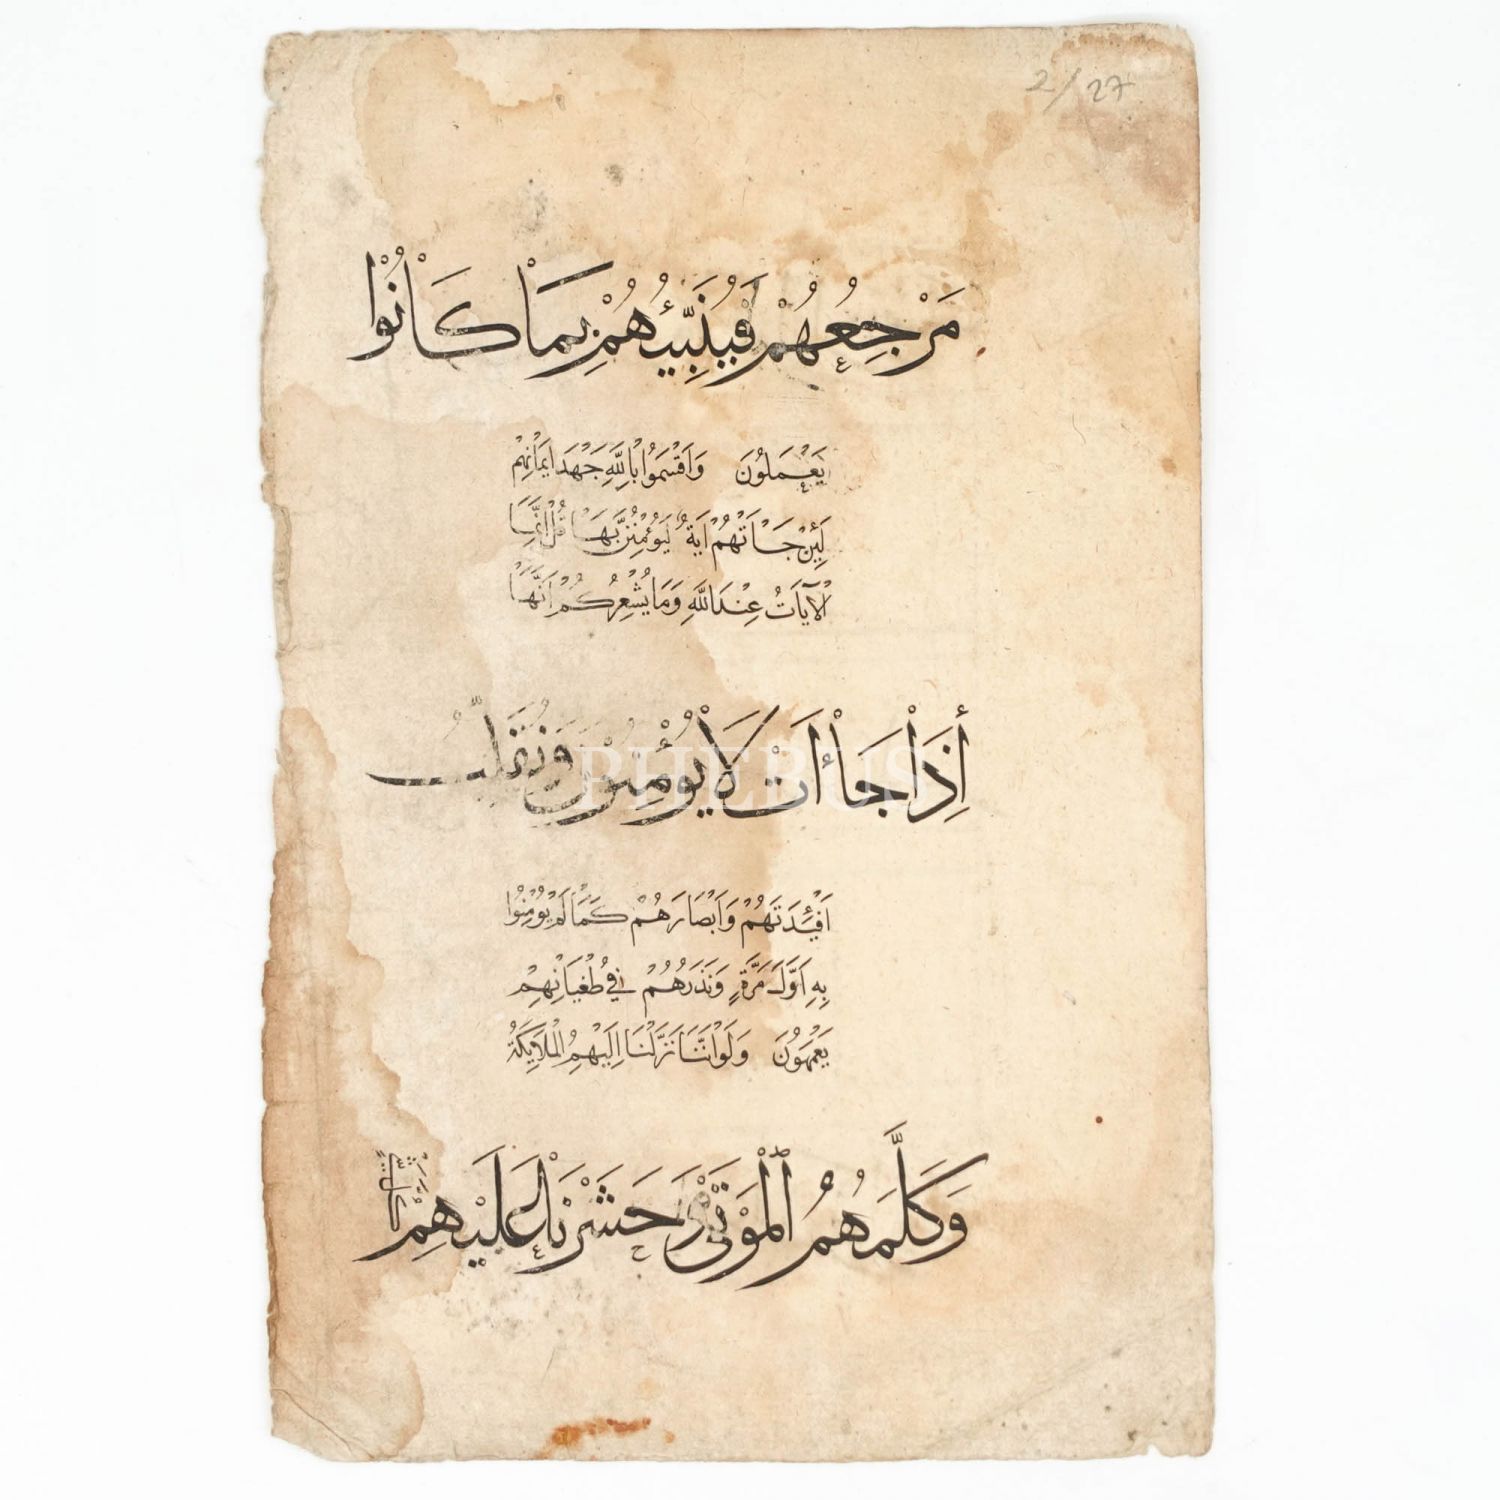 2/27
مَرْجِعُهُمْ فَيُنَبِّئُهُمْ بِمَا كَانُوْا
يَعْمَلُوْنَ وَاَقْسَمُوْا بِاللّٰهِ جَهْدَ اَيْمَانِهِمْ
لَئِنْ جَاَتْهُمْ اٰيَةٌ لَيُؤْمِنُنَّ بِهَا قُلْ اِنَّمَا
الْاٰيَاتُ عِنْدَ اللّٰهِ وَمَا يُشْعِرُكُمْ اَنَّهَا
إِذَا جَاءَتْ لَا يُؤْمِنُوْنَ وَنُقَلِّبُ
اَفْئِدَتَهُمْ وَاَبْصَارَهُمْ كَمَا لَمْ يُؤْمِنُوْا
بِهِ اَوَّلَ مَرَّةٍ وَنَذَرُهُمْ فِيْ طُغْيَانِهِمْ
يَعْمَهُوْنَ وَلَوْ اَنَّنَا نَزَّلْنَا اِلَيْهِمُ الْمَلَايِكَةَ
وَكَلَّمَهُمُ الْمَوْتٰى وَحَشَرْنَا عَلَيْهِمْ
كُلَّ شَيْءٍ
PHEBUS